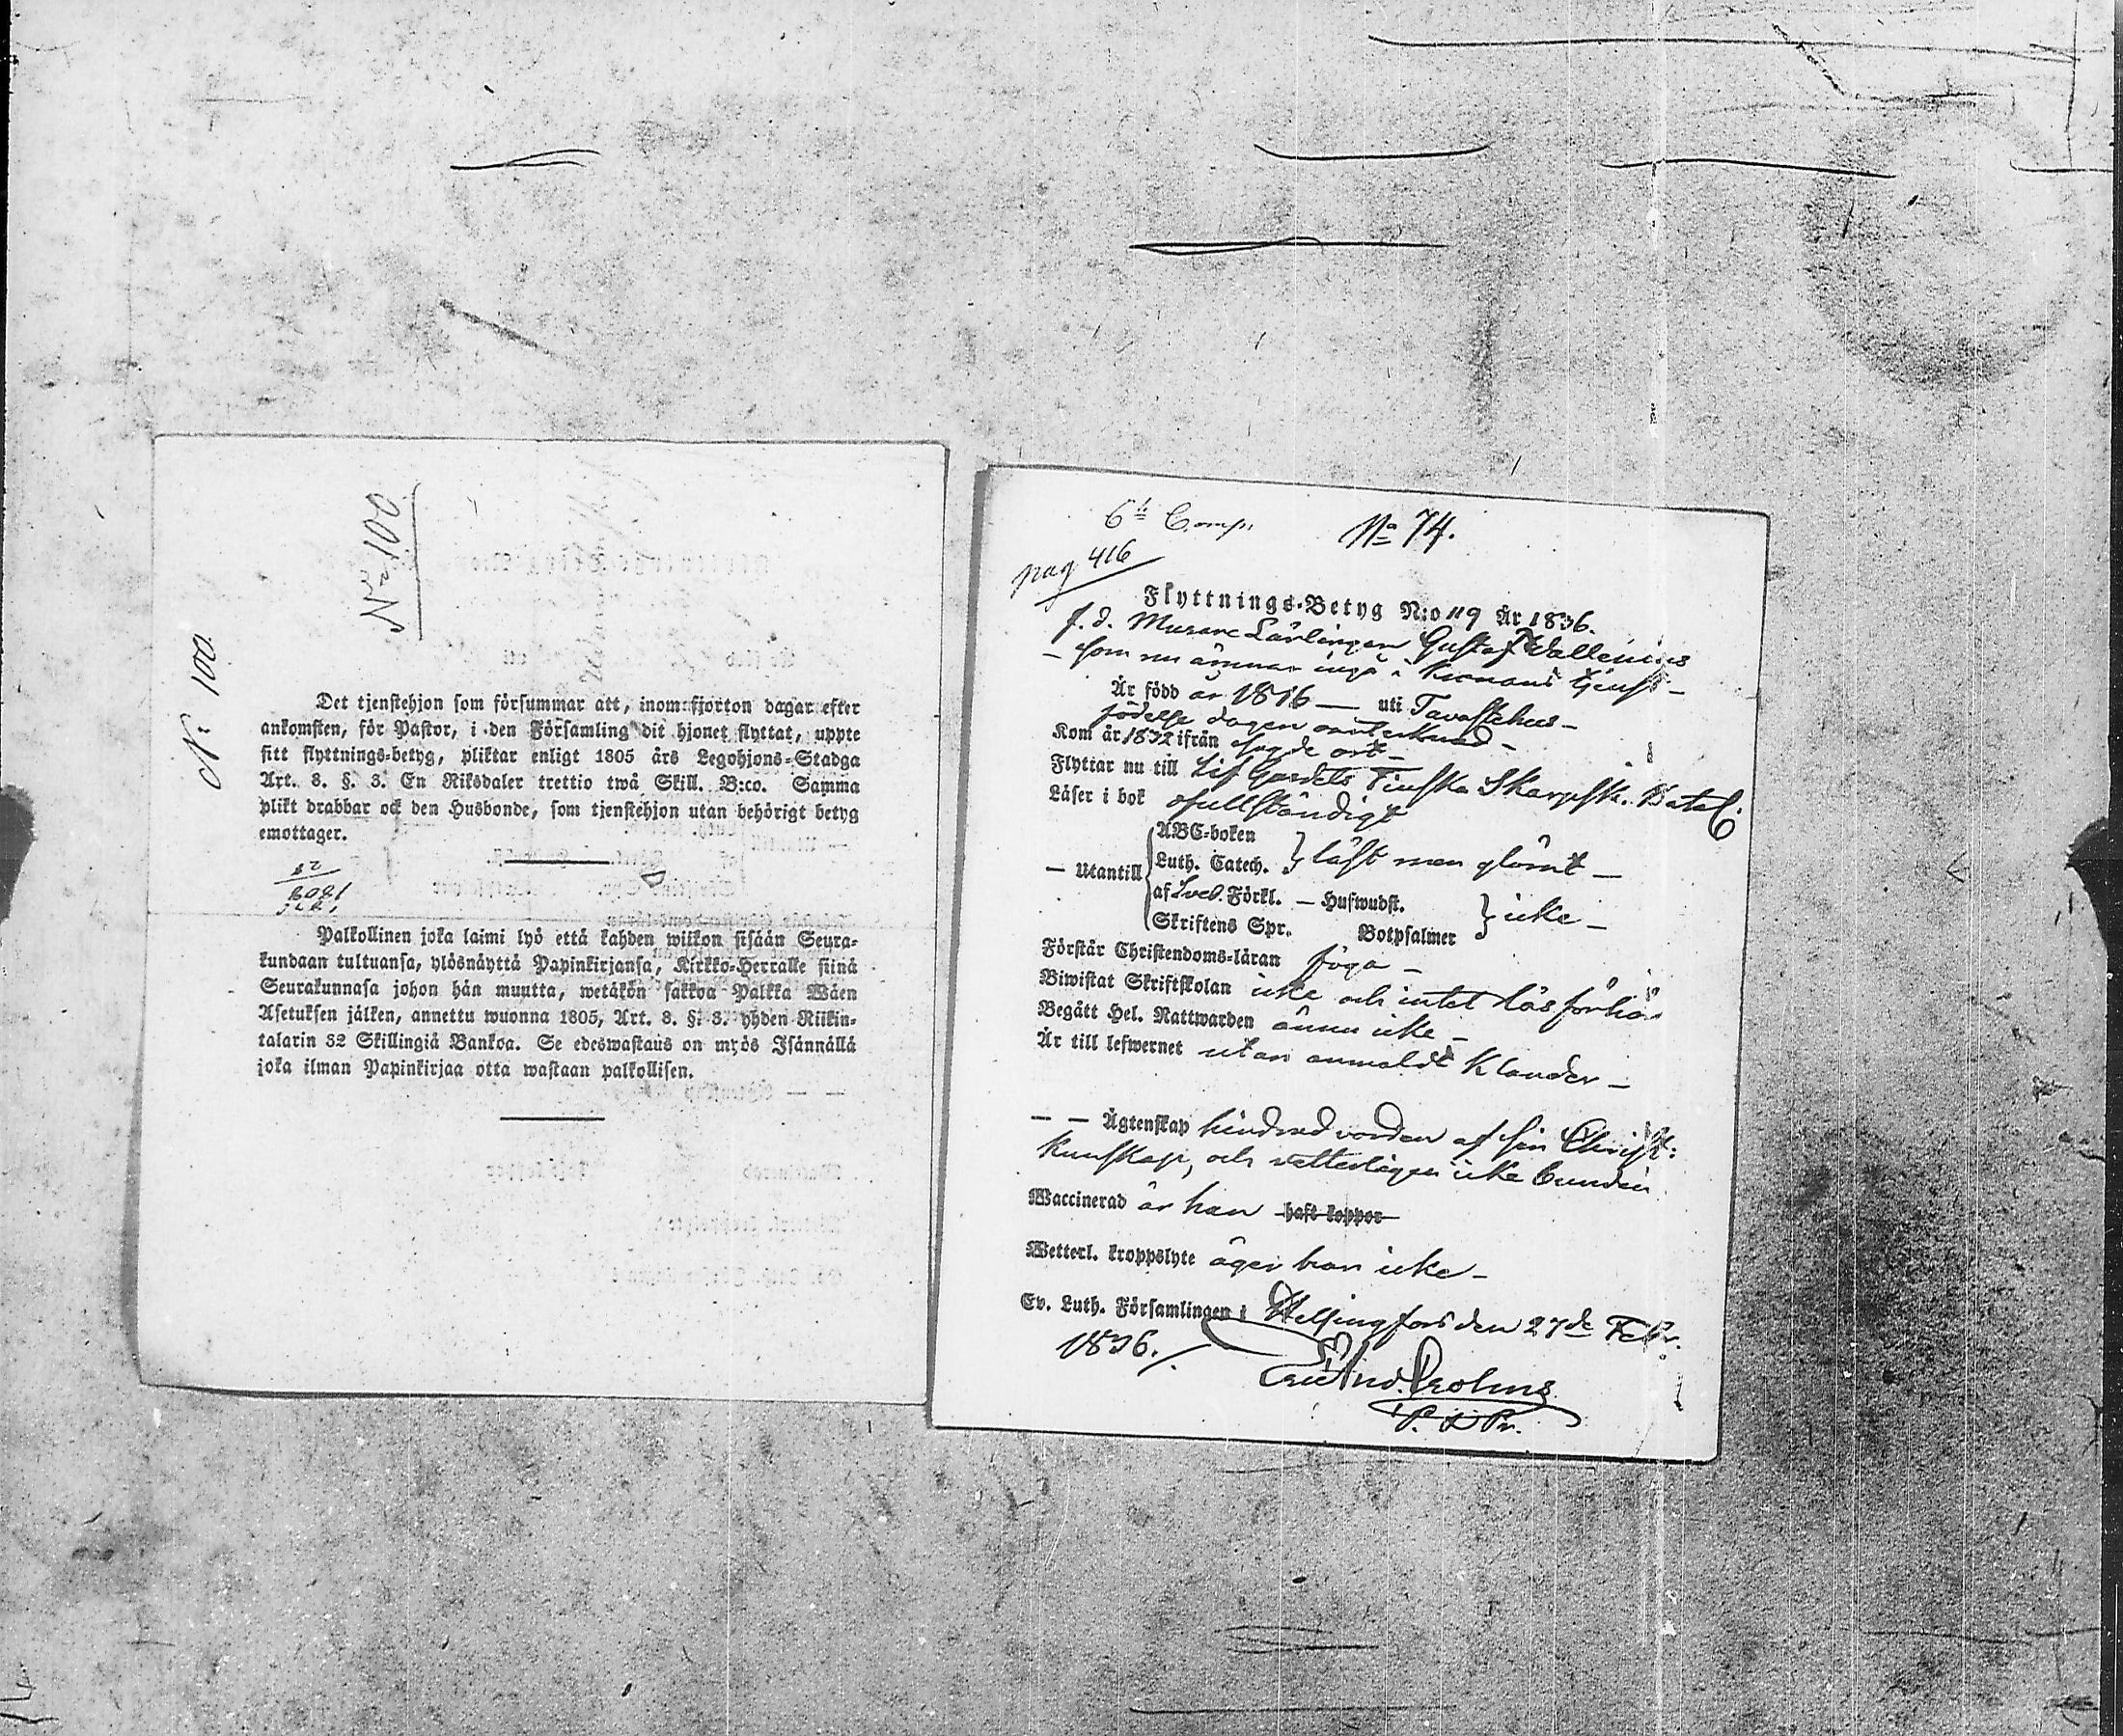 N:o 100
N:o 100.
Det tjenstehjon som försummar att, inom fjorton dagar efter
ankomsten, för Pastor, i den Församling dit hjonet flyttat, uppte
sitt flyttnings-betyg, pliktar enligt 1805 års Legohjons-Stadga
Art. 8. §. 3. En Riksdaler trettio twå Skill. B:co. Samma
plikt drabbar ock den Husbonde, som tjenstehjon utan behörigt betyg
emottager.
Palkollinen joka laimi lyö että kahden wiikon sisään Seura-
kundaan tultuansa, ylösnäyttä Papinkirjansa, Kirkko-Herralle siinä
Seurakunnasa johon hän muutta, wetäkön sakkoa Palkka Wäen
Asetuksen jälken, annettu wuonna 1805, Art. 8. §. 3. yhden Riikin-
talarin 32 Skillingiä Bankoa. Se edeswastaus on myös Isännällä
joka ilman Papinkirjaa otta wastaan palkollisen.
6te Comp.
No 74.
pag 416
Flyttnings-Betyg N:o 119 År 1836.
f. d. Murare Lärlingen Gustaf Wallenius
– som nu ämnar ingå i Kronans tjenst –
Är född år 1816 — uti Tavastehus –
födelse dagen oantecknad –
Kom år 1832 ifrån sagde ort –
Flyttar nu till Lif Gardets Finska Skarpsk. Batal.
Läser i bok ofullständigt
— Utantill
ABC-boken
Luth. Catech. } läst men glömt –
af Sveb. Förkl. — Huswudst.
Skriftens Spr. Botpsalmer } icke –
Förstår Christendoms-läran föga –
Biwistat Skriftskolan icke och intet läsförhör
Begått Hel. Nattwarden ännu icke –
Är till lefwernet utan anmäldt klander –
— — Ägtenskap hindrad vorden af sin Christ:
kunskap, och vetterligen icke bunden
Waccinerad är han haft koppor
Wetterl. kroppslyte äger han icke –
Ev. Luth. Församlingen i Helsingfors den 27de Febr.
1836.